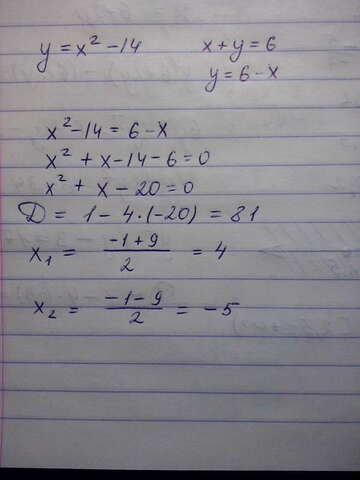 y = x² - 14 x + y = 6
y = 6 - x
x² - 14 = 6 - x
x² + x - 14 - 6 = 0
x² + x - 20 = 0
D = 1 - 4 · (-20) = 81
x₁ = (-1 + 9)/2 = 4
x₂ = (-1 - 9)/2 = -5